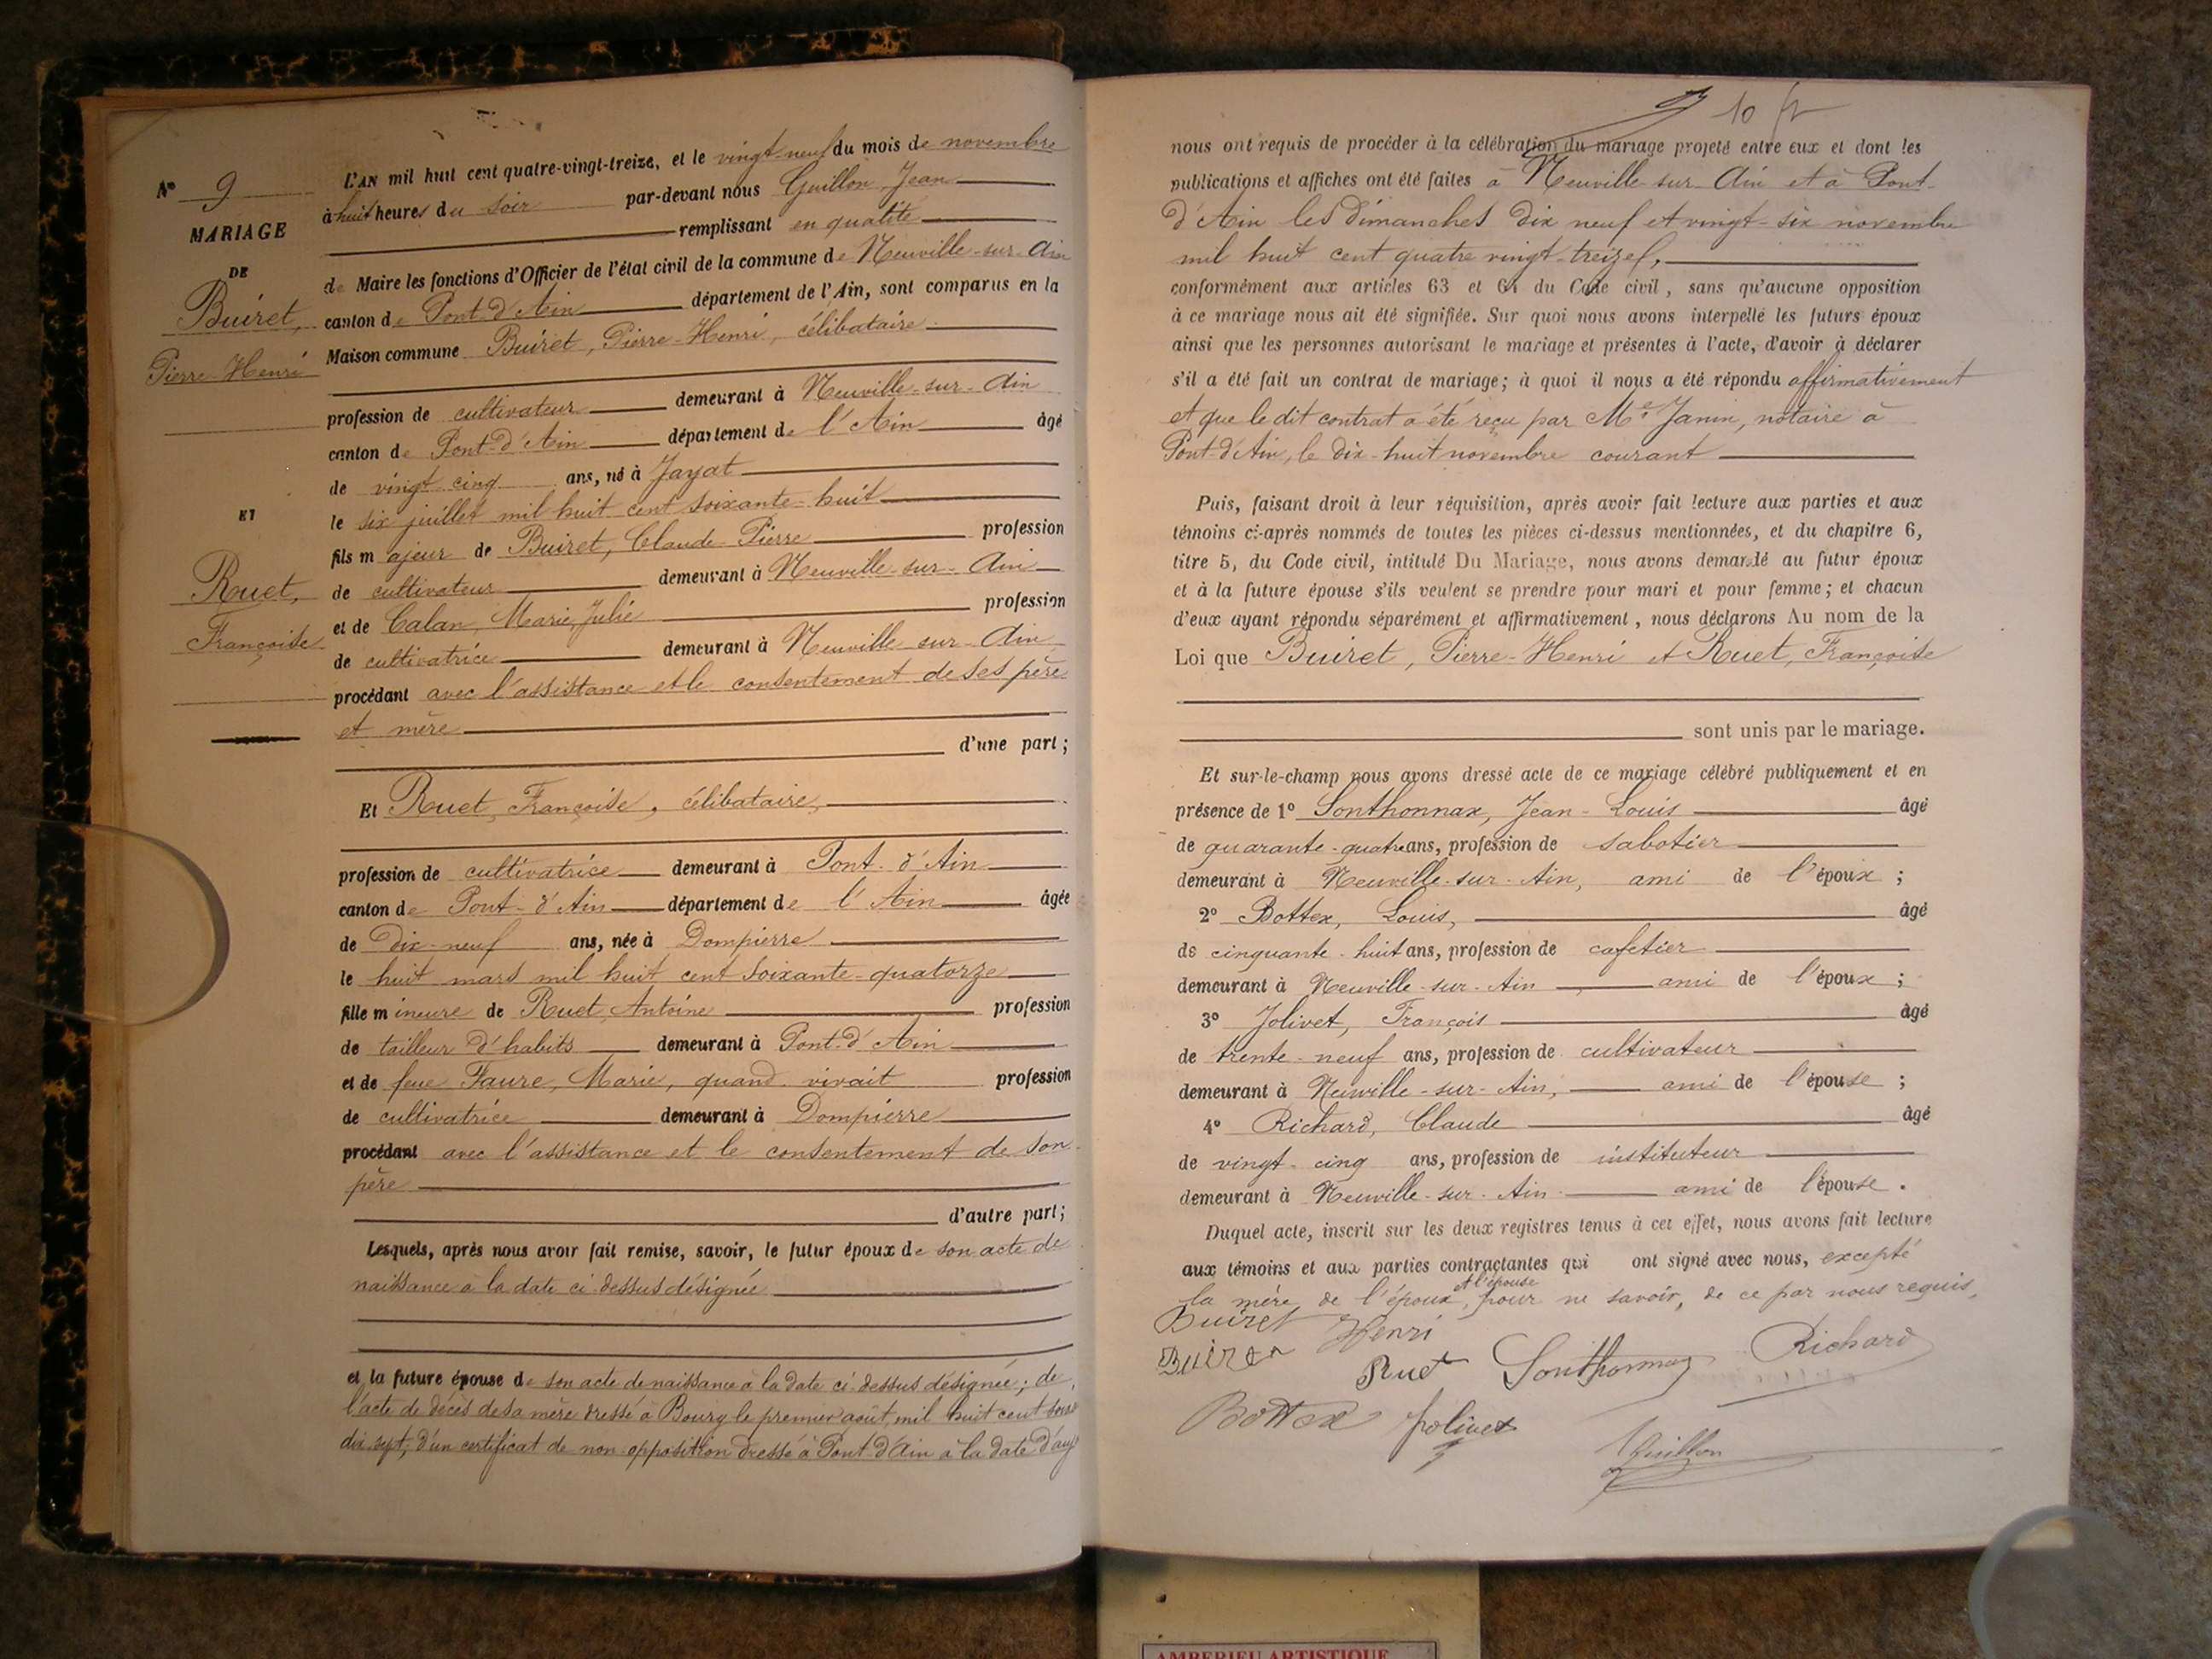 N° 9
MARIAGE
DE
Buiret,
Pierre-Henri
ET
Ruet,
Françoise
L'AN mil huit cent quatre-vingt-treize, et le vingt-neuf du mois de novembre
à huit heures du soir par-devant nous Guillon Jean
remplissant en qualité
de Maire les fonctions d'Officier de l'état civil de la commune de Neuville-sur-Ain
canton de Pont-d'Ain département de l'Ain, sont comparus en la
Maison commune Buiret, Pierre-Henri, célibataire
profession de cultivateur demeurant à Neuville-sur-Ain
canton de Pont-d'Ain département de l'Ain âgé
de vingt cinq ans, né à Jayat
le six juillet mil huit cent soixante-huit
fils majeur de Buiret, Claude-Pierre profession
de cultivateur demeurant à Neuville-sur-Ain
et de Calan, Marie, Julie profession
de cultivatrice demeurant à Neuville-sur-Ain
procédant avec l'assistance et le consentement de ses père
et mère
d'une part;
Et Ruet, Françoise, célibataire,
profession de cultivatrice demeurant à Pont-d'Ain
canton de Pont-d'Ain département de l'Ain âgée
de dix-neuf ans, née à Dompierre
le huit mars mil huit cent soixante-quatorze
fille mineure de Ruet, Antoine profession
de tailleur d'habits demeurant à Pont-d'Ain
et de feue Faure, Marie, quand vivait profession
de cultivatrice demeurant à Dompierre
procédant avec l'assistance et le consentement de son
père
d'autre part;
Lesquels, après nous avoir fait remise, savoir, le futur époux de son acte de
naissance à la date ci-dessus désignée
et la future épouse de son acte de naissance à la date ci-dessus désignée; de
l'acte de décès de sa mère dressé à Bourg le premier août mil huit cent
dix-sept, d'un certificat de non opposition dressé à Pont-d'Ain à la date
10
nous ont requis de procéder à la célébration du mariage projeté entre eux et dont les
publications et affiches ont été faites à Neuville-sur-Ain et à Pont-
d'Ain les dimanches dix neuf et vingt-six novembre
mil huit cent quatre vingt-treize,
conformément aux articles 63 et 64 du Code civil, sans qu'aucune opposition
à ce mariage nous ait été signifiée. Sur quoi nous avons interpellé les futurs époux
ainsi que les personnes autorisant le mariage et présentes à l'acte, d'avoir à déclarer
s'il a été fait un contrat de mariage; à quoi il nous a été répondu affirmativement
et que le dit contrat a été reçu par Me Janin, notaire à
Pont-d'Ain, le dix-huit novembre courant
Puis, faisant droit à leur réquisition, après avoir fait lecture aux parties et aux
témoins ci-après nommés de toutes les pièces ci-dessus mentionnées, et du chapitre 6,
titre 5, du Code civil, intitulé Du Mariage, nous avons demandé au futur époux
et à la future épouse s'ils veulent se prendre pour mari et pour femme; et chacun
d'eux ayant répondu séparément et affirmativement, nous déclarons Au nom de la
Loi que Buiret, Pierre-Henri et Ruet, Françoise
sont unis par le mariage.
Et sur-le-champ nous avons dressé acte de ce mariage célébré publiquement et en
présence de 1° Sonthonnax, Jean-Louis âgé
de quarante-quatre ans, profession de sabotier
demeurant à Neuville-sur-Ain, ami de l'époux;
2° Bottex, Louis, âgé
de cinquante-huit ans, profession de cafetier
demeurant à Neuville-sur-Ain ami de l'époux;
3° Jolivet, François âgé
de trente-neuf ans, profession de cultivateur
demeurant à Neuville-sur-Ain, ami de l'épouse;
4° Richard, Claude âgé
de vingt-cinq ans, profession de instituteur
demeurant à Neuville-sur-Ain ami de l'épouse.
Duquel acte, inscrit sur les deux registres tenus à cet effet, nous avons fait lecture
aux témoins et aux parties contractantes qui ont signé avec nous, excepté
et l'épouse
la mère de l'époux, pour ne savoir, de ce par nous requis,
Buiret Henri
Buiret Ruet Sonthonnax Richard
Bottex Jolivet
Guillon
AMBERIEU ARTISTIQUE